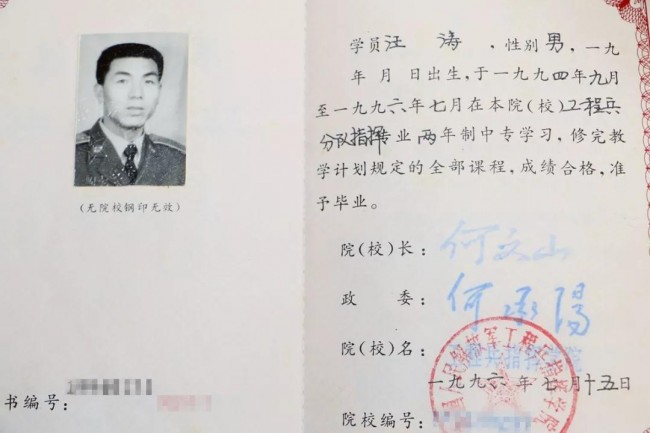 (无院校钢印无效)
书编号:
学员汪 涛 ,性别男,一九
年 月 日出生,于一九九四年九月
至一九九六年七月在本院(校)工程兵
分队指挥专业 两年制中专学习,修完教
学计划规定的全部课程,成绩合格,准
予毕业。
院(校)长: 何文山
政 委: 何承阳
院(校)名:
一九九六年 七月十五日
院校编号: